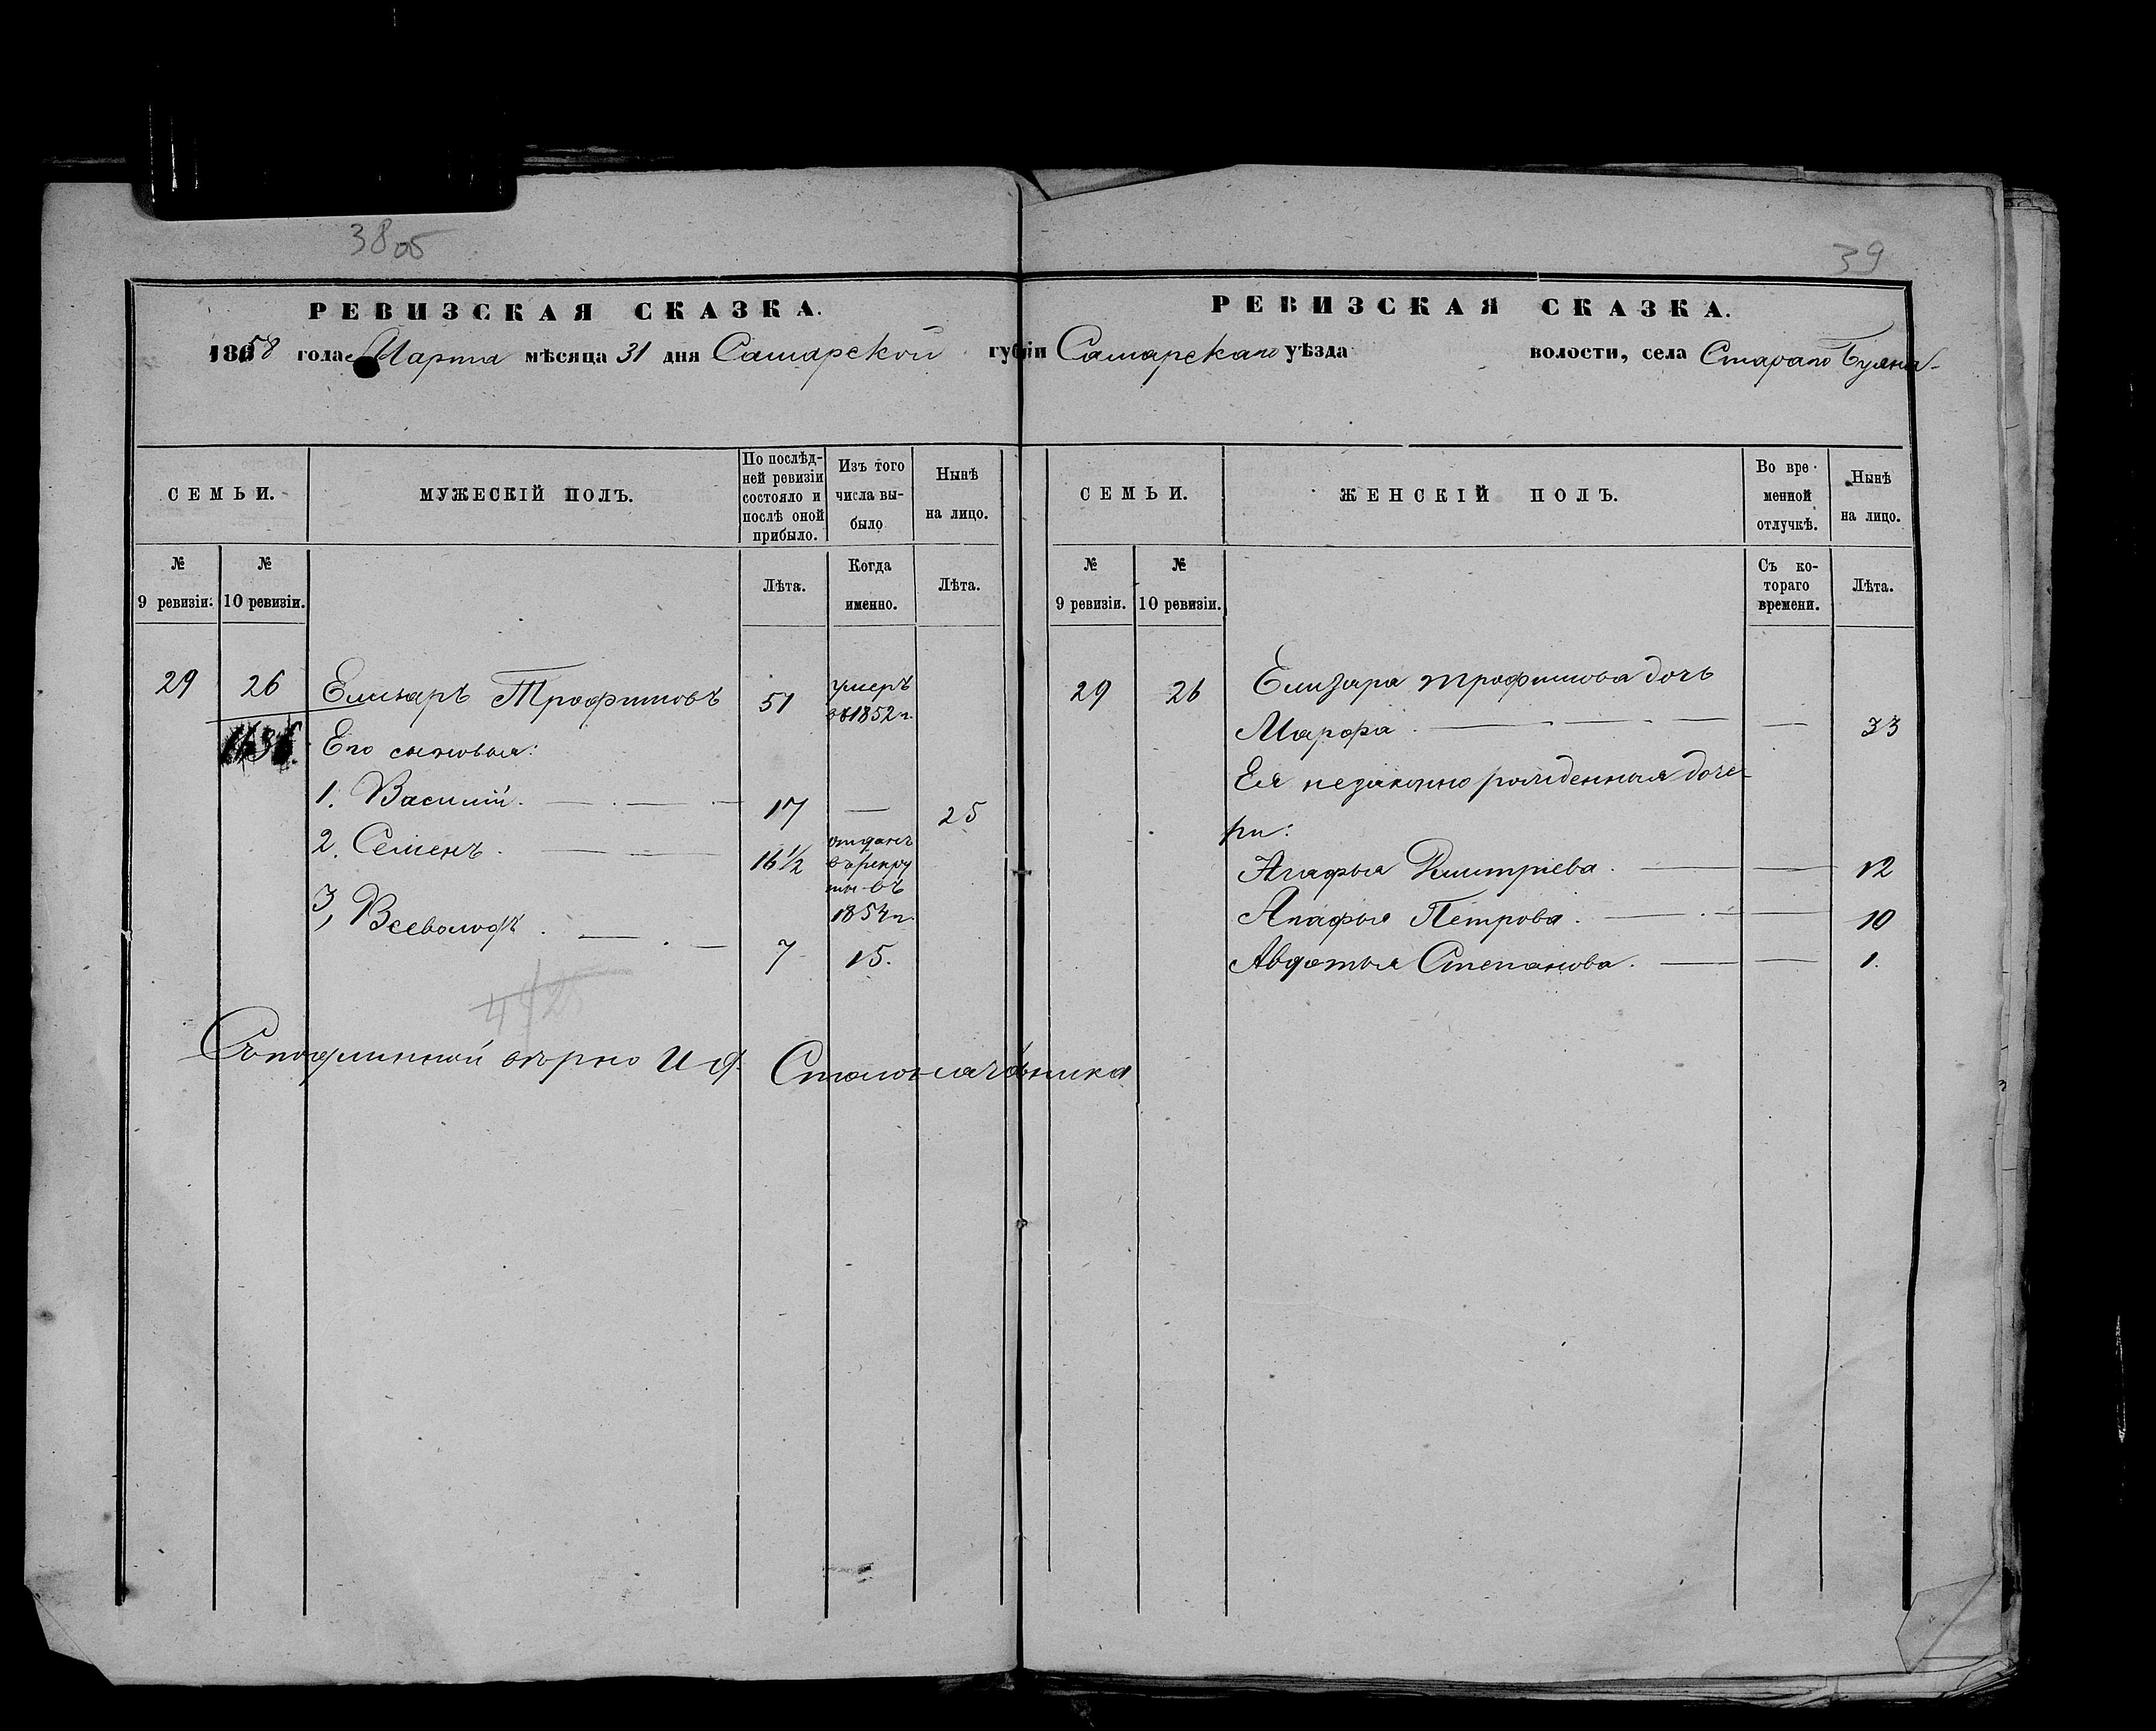 38 об
РЕВИЗСКАЯ СКАЗКА.
1858 года Марта мѣсяца 31 дня Самарской губ
СЕМЬИ.
МУЖЕСКІЙ ПОЛЪ.
По послѣд-
ней ревизіи
состояло и
послѣ оной
прибыло.
Изъ того
числа вы-
было
Нынѣ
на лицо.
№
9 ревизіи.
№
10 ревизіи.
Лѣта.
Когда
именно.
Лѣта.
29 26 Елизаръ Трофимовъ 51 умеръ
въ 1852 г.
Его сыновья:
1. Василій. — 17 — 25
2. Семенъ. — 16 1/2 отданъ
въ рекру
ты въ
1854 г.
3, Всеволодъ. — 7 15.
Съ подлинной вѣрно И д. Столоначальника
39
РЕВИЗСКАЯ СКАЗКА.
ніи Самарскаго уѣзда волости, села Стараго Буяна
СЕМЬИ.
ЖЕНСКІЙ ПОЛЪ.
Во вре-
менной
отлучкѣ.
Нынѣ
на лицо.
№
9 ревизіи.
№
10 ревизіи.
Съ ко-
тораго
времени.
Лѣта.
29 26 Елизара Трофимова дочь
Марфа. — — 33
Ея незаконно рожденныя доче-
ри:
Агафья Дмитріева. — — 12
Агафья Петрова. — — 10
Авдотья Степанова. — — 1.